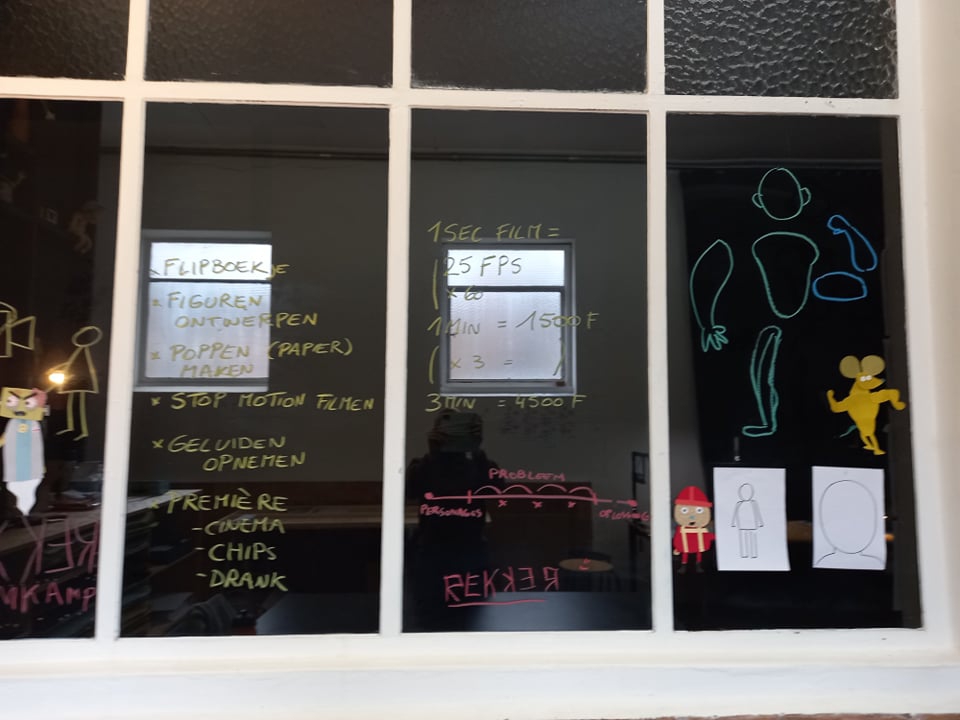 * FLIPBOEKJE
* FIGUREN
ONTWERPEN
* POPPEN (PAPIER)
MAKEN
* STOP MOTION FILMEN
* GELUIDEN
OPNEMEN
* PREMIÈRE
- CINEMA
- CHIPS
- DRANK
1 SEC FILM =
25 FPS
( × 60
1 MIN = 1500 F
( × 3 = )
3 MIN = 4500 F
PROBLEEM
PERSONAGES
OPLOSSING
REKKER
REK
MKAMP